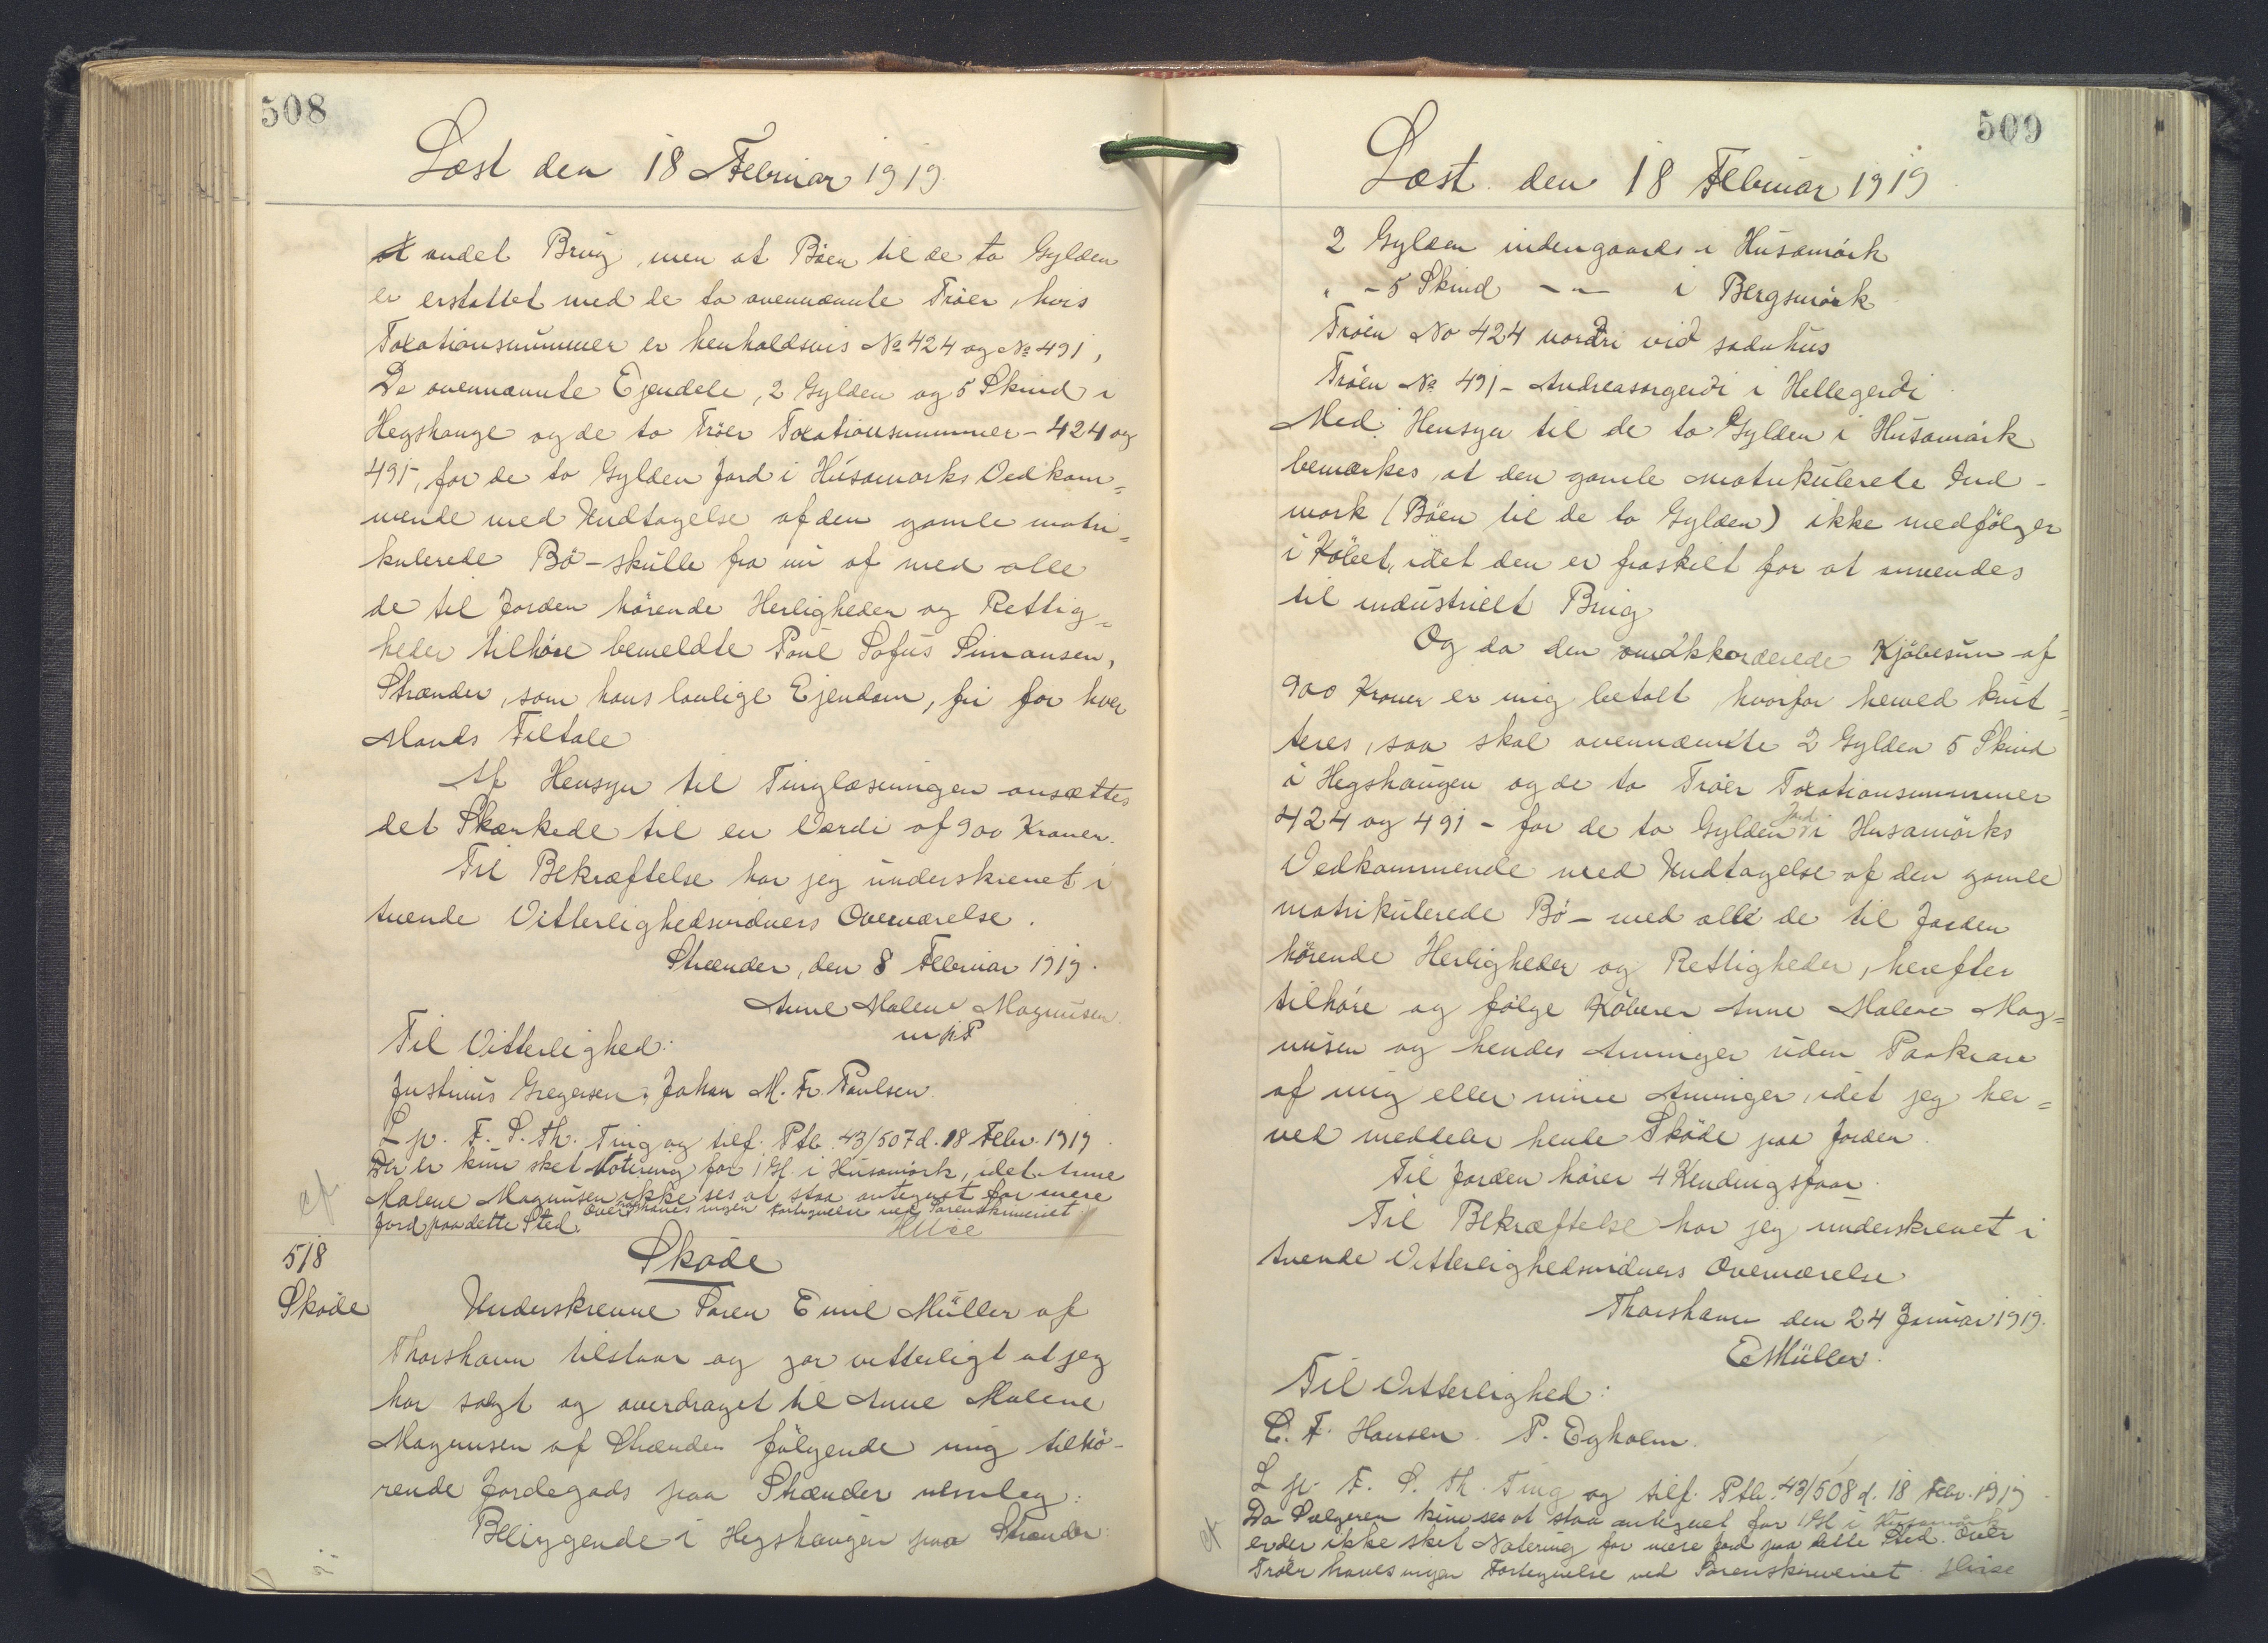 508
Læst den 18 Februar 1919.
et andet Brug, men at Böen til de to Gylden
er erstattet med de to ovennævnte Tröer, hvis
Taxationsnummer er henholdsvis No 424 og No 491,
De ovennævnte Ejendele, 2 Gylden og 5 Skind i
Hegshauge og de to Tröer Taxationsnummer - 424 og
491, for de to Gylden Jord i Húsamørks Vedkom=
mende med Undtagelse af den gamle matri=
kulerede Bö - skulle fra nu af med alle
de til Jorden hörende Herligheder og Rettig=
heder tilhöre bemeldte Poul Sofus Simonsen,
Strænder, som hans lovlige Ejendom, fri for hver
Mands Tiltale
Af Hensyn til Tinglæsningen ansættes
det Skænkede til en Værdi af 900 Kroner.
Til Bekræftelse har jeg underskrevet i
tvende Vitterlighedsvidners Overværelse.
Strænder, den 8 Februar 1919.
Anne Malene Magnusen
m p P
Til Vitterlighed:
Justinus Gregersen. Johan M. Fr. Poulsen.
L p. F. S. Th. Ting og tilf. Ptb. 43/507 d. 18 Febr. 1919.
Der er kun sket Notering for 1 Gl. i Húsamörk, idet Anne
Malene Magnusen ikke ses at staa antegnet for mere
Jord paa dette Sted. Over Tröer haves ingen Fortegnelse ved Sorenskriveriet
518
Skøde
Skøde
Underskrevne Soren Emil Müller af
Thorshavn tilstaar og gör vitterligt at jeg
har solgt og overdraget til Anne Malene
Magnusen af Strænder fölgende mig tilhö-
rende Jordegods paa Strænder nemlig:
Beliggende i Hegshaugen paa Strænder:
509
Læst den 18 Februar 1919
2 Gylden indengaards i Húsamörk
" - 5 Skind - " - i Bergsmörk
Tröen No 424 nordri við soduhus
Tröen No 491 - Andreasargerði i Hellegerði
Med Hensyn til de to Gylden i Húsamörk
bemærkes, at den gamle matrikulerede Ind-
mark (Böen til de to Gylden) ikke medfölger
i Köbet, idet den er fraskilt for at anvendes
til industrielt Brug
Og da den omakkorderede Kjöbesum af
900 Kroner er mig betalt, hvorfor herved kvit=
teres, saa skal ovennævnte 2 Gylden 5 Skind
i Hegshaugen og de to Tröer Taxationsnummer
424 og 491 - for de to Gylden Jord i Husamörks
Vedkommende med Undtagelse af den gamle
matrikulerede Bö - med alle de til Jorden
hörende Herligheder og Rettigheder, herefter
tilhöre og fölge Köberen Anne Malene Mag=
nusen og hendes Arvinger uden Paakrav
af mig eller mine Arvinger, idet jeg her=
ved meddeler hende Sköde paa Jorden.
Til Jorden hörer 4 Kendingsfaar.
Til Bekræftelse har jeg underskrevet i
tvende Vitterlighedsvidners Overværelse
Thorshavn den 24 Januar 1919.
E Müller.
Til Vitterlighed:
C. F. Hansen. P. Egholm.
L p. F. S. Th. Ting og tilf. Ptb. 43/508 d. 18 Febr. 1919
Da Sælgeren kun ses at staa antegnet for 1 Gl i Husamörk
er der ikke sket Notering for mere Jord paa dette Sted. Over
Tröer haves ingen Fortegnelse ved Sorenskriveriet.